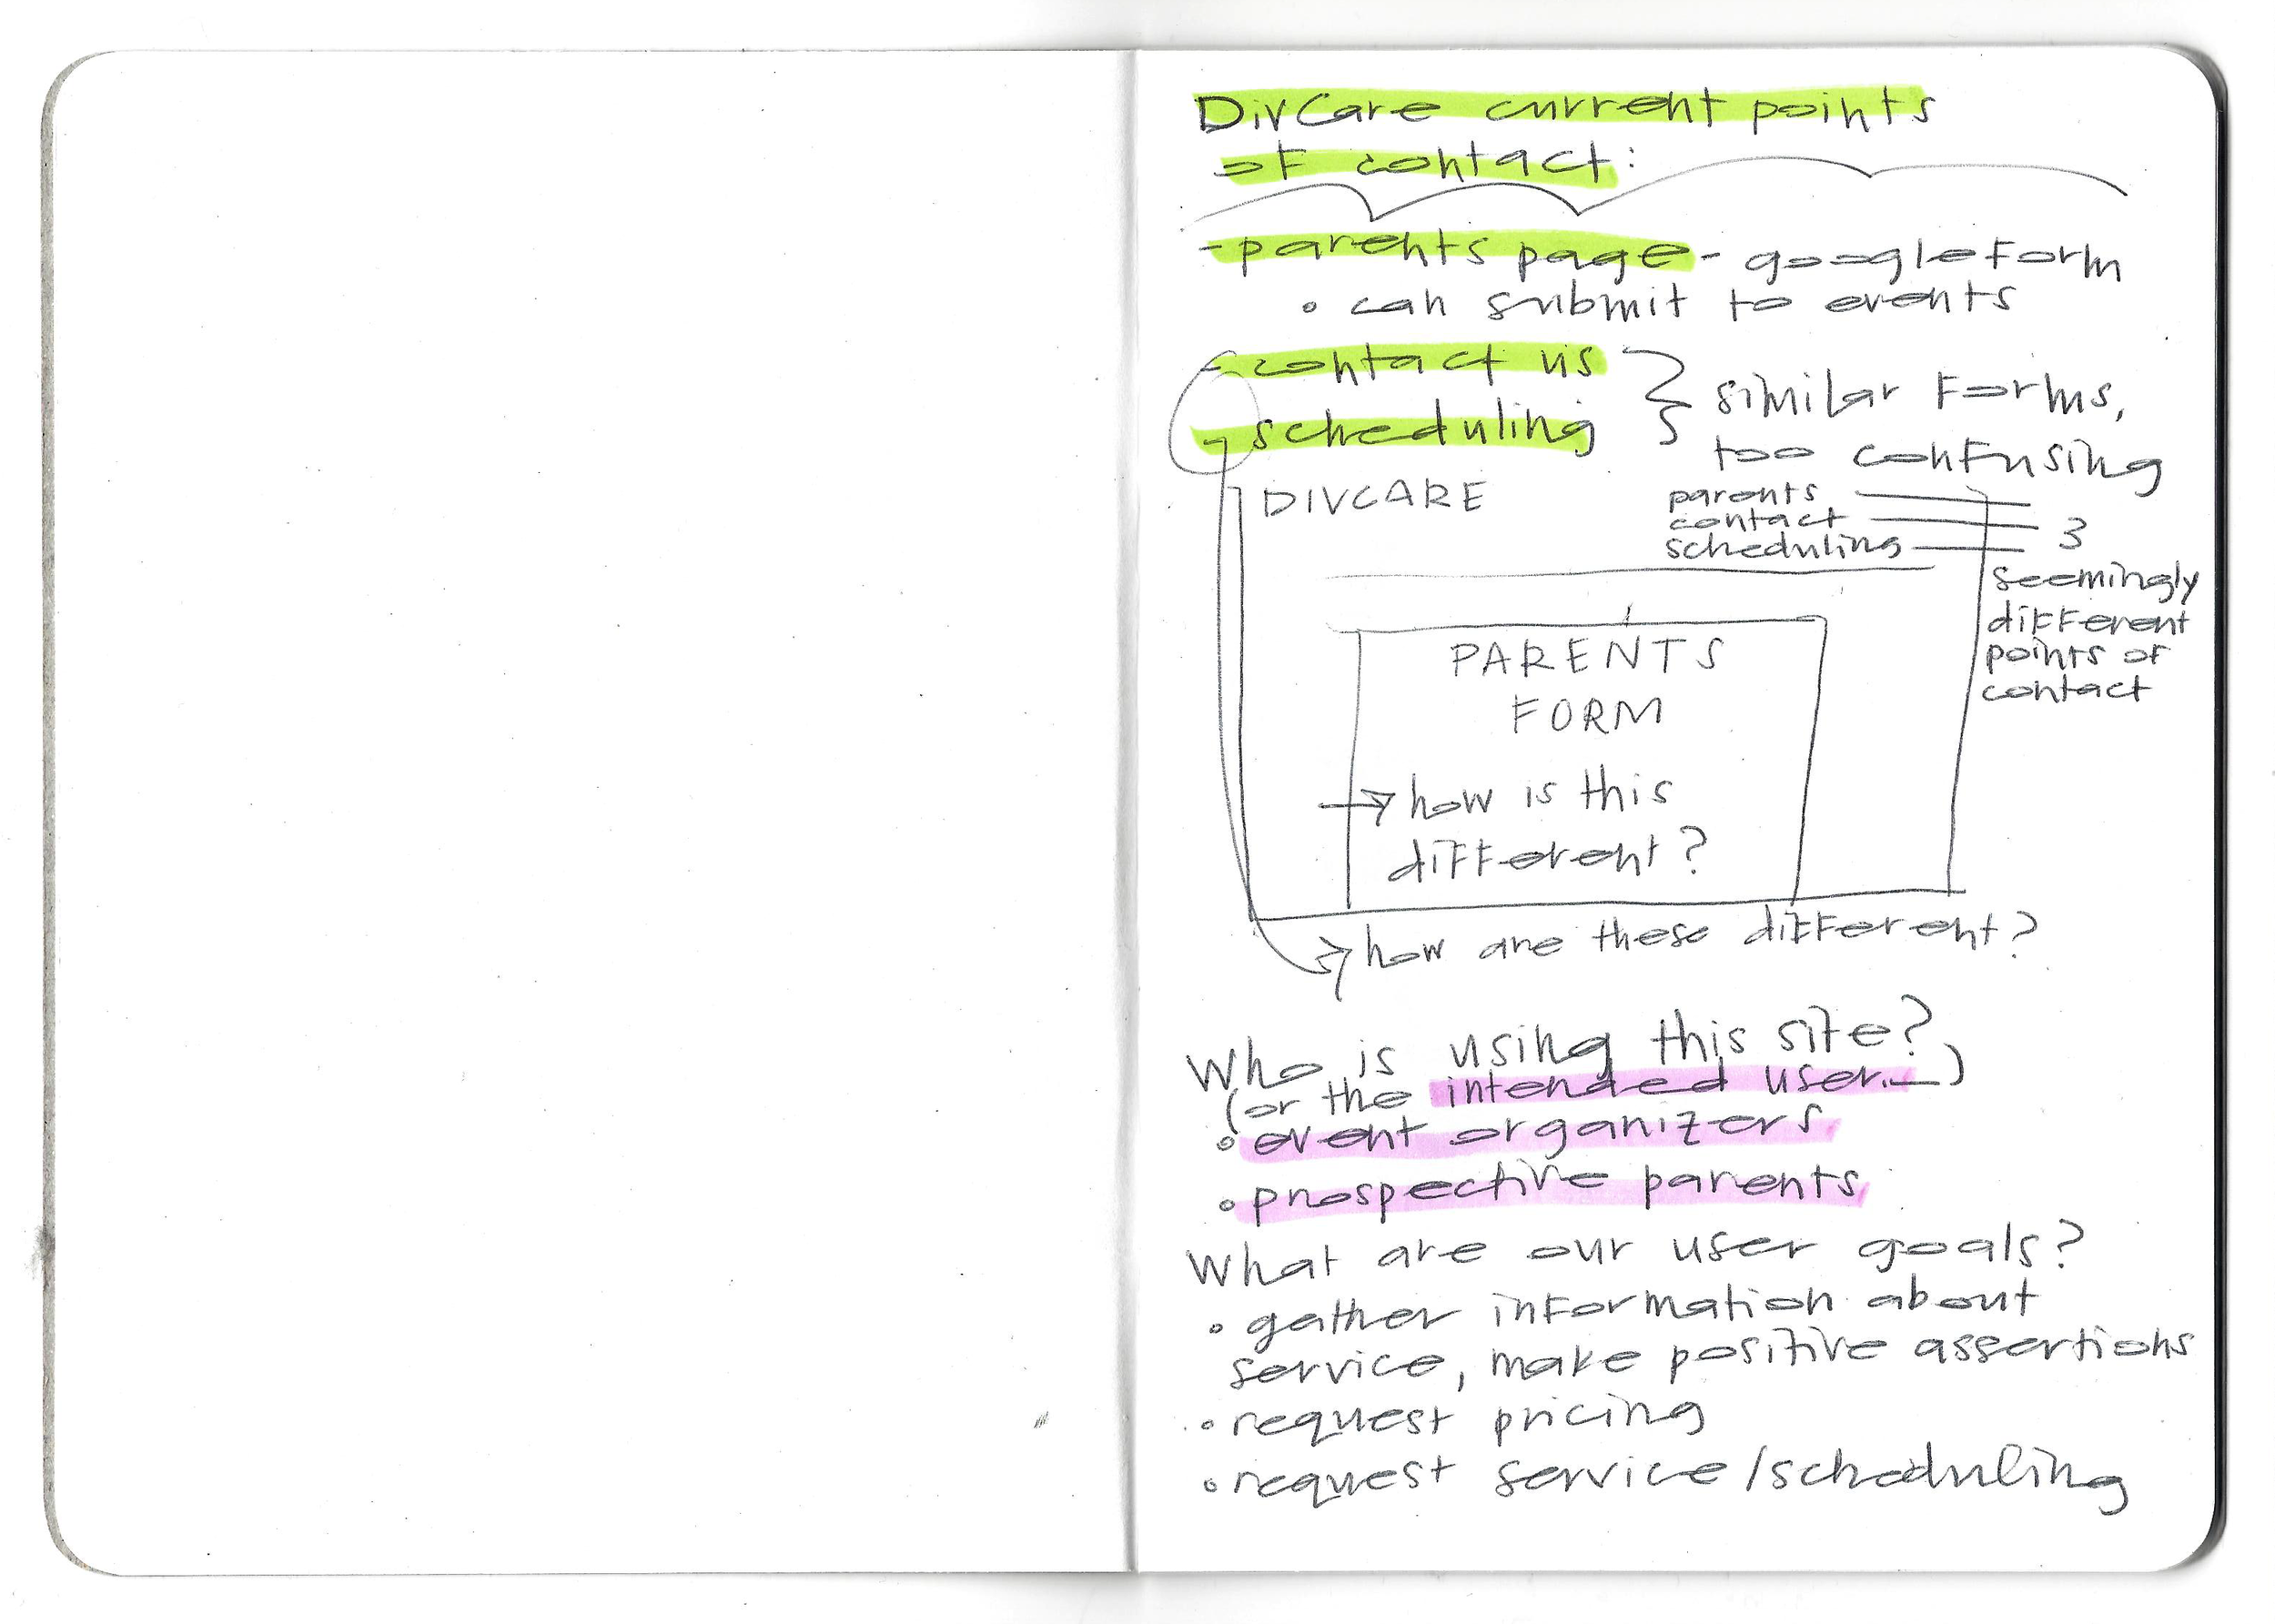 DivCare current points
of contact:
- parents page - googleform
• can submit to events
- contact us
- scheduling
} similar forms,
too confusing
DIVCARE
parents
contact
scheduling
3
seemingly
different
points of
contact
PARENTS
FORM
→ how is this
different?
→ how are these different?
Who is using this site?
(or the intended user...)
• event organizers
• prospective parents
What are our user goals?
• gather information about
service, make positive assertions
• request pricing
• request service/scheduling